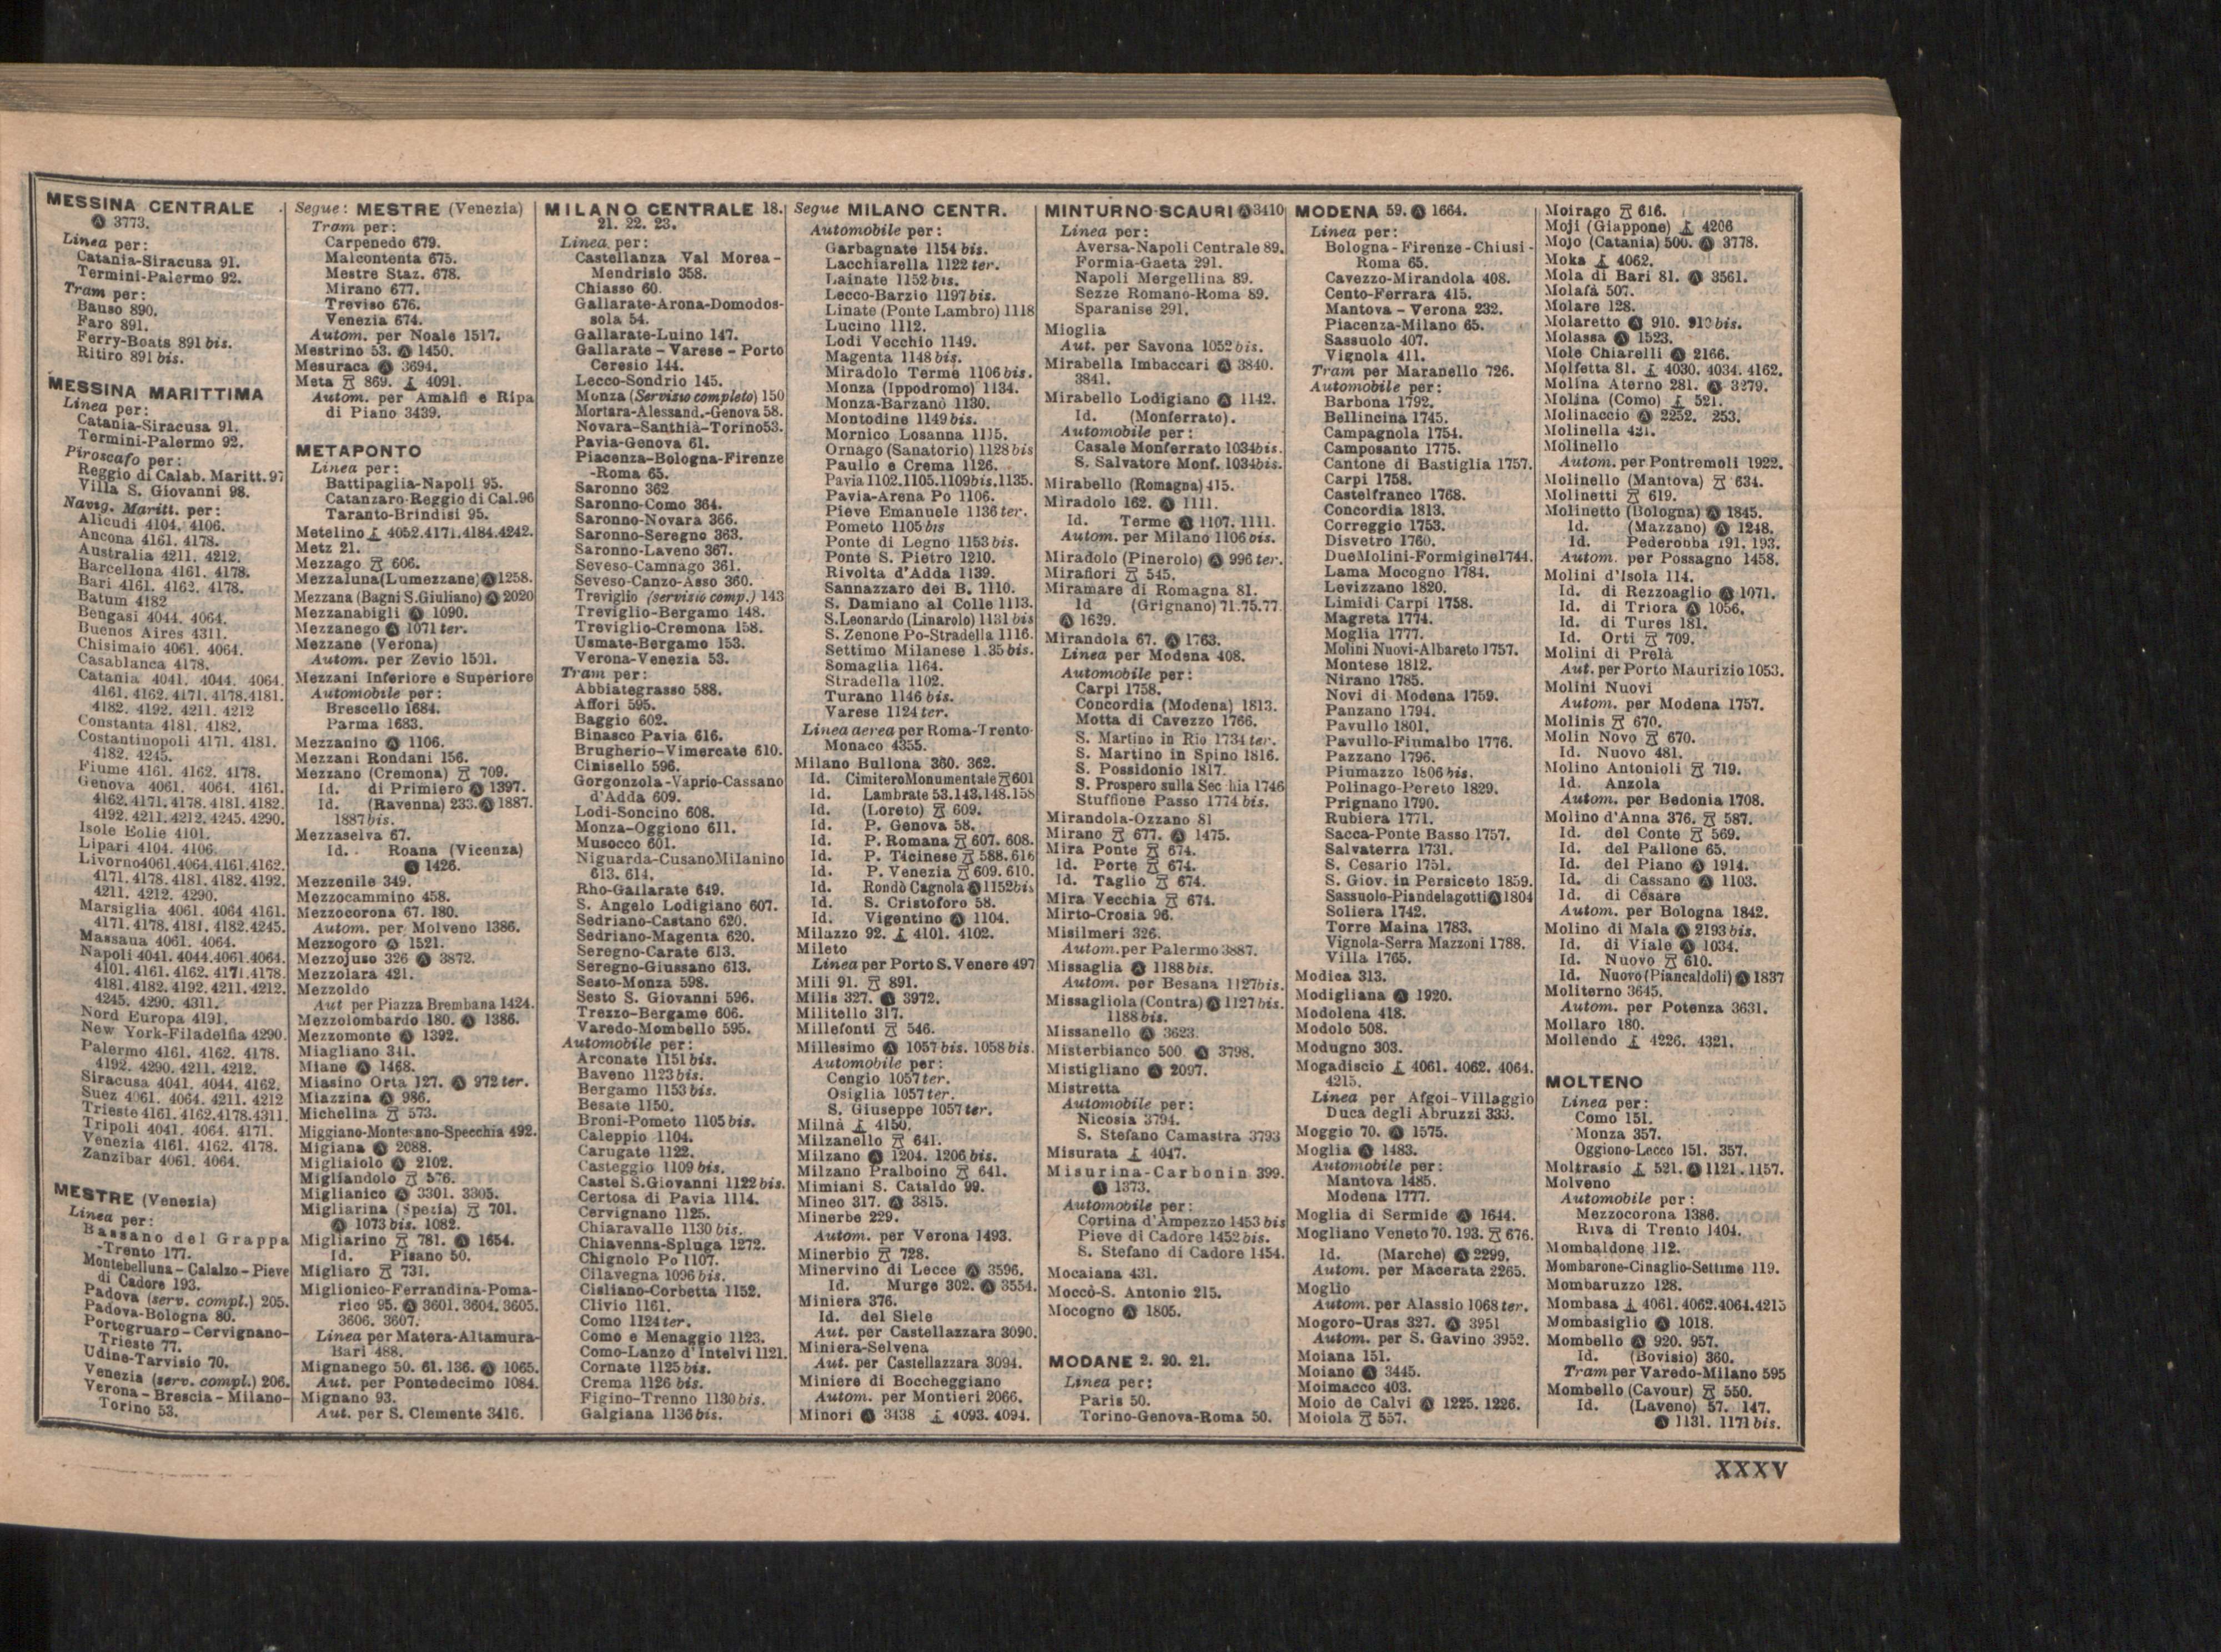 MESSINA CENTRALE
Ⓐ 3773.
Linea per:
Catania-Siracusa 91.
Termini-Palermo 92.
Tram per:
Bauso 890.
Faro 891.
Ferry-Boats 891 bis.
Ritiro 891 bis.
MESSINA MARITTIMA
Linea per:
Catania-Siracusa 91.
Termini-Palermo 92.
Piroscafo per:
Reggio di Calab. Maritt. 97
Villa S. Giovanni 98.
Navig. Maritt. per:
Alicudi 4104. 4106.
Ancona 4161. 4178.
Australia 4211. 4212.
Barcellona 4161. 4178.
Bari 4161. 4162. 4178.
Batum 4182
Bengasi 4044. 4064.
Buenos Aires 4311.
Chisimaio 4061. 4064.
Casablanca 4178.
Catania 4041. 4044. 4064.
4161. 4162. 4171. 4178. 4181.
4182. 4192. 4211. 4212
Constanta 4181. 4182.
Costantinopoli 4171. 4181.
4182. 4245.
Fiume 4161. 4162. 4178.
Genova 4061. 4064. 4161.
4162. 4171. 4178. 4181. 4182.
4192. 4211. 4212. 4245. 4290.
Isole Eolie 4101.
Lipari 4104. 4106.
Livorno 4061. 4064. 4161. 4162.
4171. 4178. 4181. 4182. 4192.
4211. 4212. 4290.
Marsiglia 4061. 4064 4161.
4171. 4178. 4181. 4182. 4245.
Massaua 4061. 4064.
Napoli 4041. 4044. 4061. 4064.
4101. 4161. 4162. 4171. 4178.
4181. 4182. 4192. 4211. 4212.
4245. 4290. 4311.
Nord Europa 4191.
New York-Filadelfia 4290.
Palermo 4161. 4162. 4178.
4192. 4290. 4211. 4212.
Siracusa 4041. 4044. 4162.
Suez 4061. 4064. 4211. 4212
Trieste 4161. 4162. 4178. 4311.
Tripoli 4041. 4064. 4171.
Venezia 4161. 4162. 4178.
Zanzibar 4061. 4064.
MESTRE (Venezia)
Linea per:
Bassano del Grappa
-Trento 177.
Montebelluna - Calalzo - Pieve
di Cadore 193.
Padova (serv. compl.) 205.
Padova-Bologna 80.
Portogruaro - Cervignano-
Trieste 77.
Udine-Tarvisio 70.
Venezia (serv. compl.) 206.
Verona - Brescia - Milano-
Torino 53.
Segue: MESTRE (Venezia)
Tram per:
Carpenedo 679.
Malcontenta 675.
Mestre Staz. 678.
Mirano 677.
Treviso 676.
Venezia 674.
Autom. per Noale 1517.
Mestrino 53. Ⓐ 1450.
Mesuraca Ⓐ 3694.
Meta 869. 4091.
Autom. per Amalfi e Ripa
di Piano 3439.
METAPONTO
Linea per:
Battipaglia-Napoli 95.
Catanzaro-Reggio di Cal. 96
Taranto-Brindisi 95.
Metelino 4052. 4171. 4184. 4242.
Metz 21.
Mezzago 606.
Mezzaluna (Lumezzane) Ⓐ 1258.
Mezzana (Bagni S. Giuliano) Ⓐ 2020
Mezzanabigli Ⓐ 1090.
Mezzanego Ⓐ 1071 ter.
Mezzane (Verona)
Autom. per Zevio 1501.
Mezzani Inferiore e Superiore
Automobile per:
Brescello 1684.
Parma 1683.
Mezzanino Ⓐ 1106.
Mezzani Rondani 156.
Mezzano (Cremona) 709.
Id. di Primiero Ⓐ 1397.
Id. (Ravenna) 233. Ⓐ 1887.
1887 bis.
Mezzaselva 67.
Id. Roana (Vicenza)
Ⓐ 1426.
Mezzenile 349.
Mezzocammino 458.
Mezzocorona 67. 180.
Autom. per Molveno 1386.
Mezzogoro Ⓐ 1521.
Mezzojuso 326 Ⓐ 3872.
Mezzolara 421.
Mezzoldo
Aut per Piazza Brembana 1424.
Mezzolombardo 180. Ⓐ 1386.
Mezzomonte Ⓐ 1392.
Miagliano 341.
Miane Ⓐ 1468.
Miasino Orta 127. Ⓐ 972 ter.
Miazzina Ⓐ 986.
Michelina 573.
Miggiano-Montesano-Specchia 492.
Migiana Ⓐ 2088.
Migliaiolo Ⓐ 2102.
Migliandolo 576.
Miglianico Ⓐ 3301. 3305.
Migliarina (Spezia) 701.
Ⓐ 1073 bis. 1082.
Migliarino 781. Ⓐ 1654.
Id. Pisano 50.
Migliaro 731.
Miglionico-Ferrandina-Poma-
rico 95. Ⓐ 3601. 3604. 3605.
3606. 3607.
Linea per Matera-Altamura-
Bari 488.
Mignanego 50. 61. 136. Ⓐ 1065.
Aut. per Pontedecimo 1084.
Mignano 93.
Aut. per S. Clemente 3416.
MILANO CENTRALE 18.
21. 22. 23.
Linea per:
Castellanza Val Morea -
Mendrisio 358.
Chiasso 60.
Gallarate-Arona-Domodos-
sola 54.
Gallarate-Luino 147.
Gallarate - Varese - Porto
Ceresio 144.
Lecco-Sondrio 145.
Monza (Servizio completo) 150
Mortara-Alessand.-Genova 58.
Novara-Santhià-Torino 53.
Pavia-Genova 61.
Piacenza-Bologna-Firenze
-Roma 65.
Saronno 362
Saronno-Como 364.
Saronno-Novara 366.
Saronno-Seregno 363.
Saronno-Laveno 367.
Seveso-Camnago 361.
Seveso-Canzo-Asso 360.
Treviglio (servizio comp.) 143
Treviglio-Bergamo 148.
Treviglio-Cremona 158.
Usmate-Bergamo 153.
Verona-Venezia 53.
Tram per:
Abbiategrasso 588.
Affori 595.
Baggio 602.
Binasco Pavia 616.
Brugherio-Vimercate 610.
Cinisello 596.
Gorgonzola-Vaprio-Cassano
d'Adda 609.
Lodi-Soncino 608.
Monza-Oggiono 611.
Musocco 601.
Niguarda-Cusano Milanino
613. 614.
Rho-Gallarate 649.
S. Angelo Lodigiano 607.
Sedriano-Castano 620.
Sedriano-Magenta 620.
Seregno-Carate 613.
Seregno-Giussano 613.
Sesto-Monza 598.
Sesto S. Giovanni 596.
Trezzo-Bergamo 606.
Varedo-Mombello 595.
Automobile per:
Arconate 1151 bis.
Baveno 1123 bis.
Bergamo 1153 bis.
Besate 1150.
Broni-Pometo 1105 bis.
Caleppio 1104.
Carugate 1122.
Casteggio 1109 bis.
Castel S. Giovanni 1122 bis.
Certosa di Pavia 1114.
Cervignano 1125.
Chiaravalle 1130 bis.
Chiavenna-Spluga 1272.
Chignolo Po 1107.
Cilavegna 1096 bis.
Cisliano-Corbetta 1152.
Clivio 1161.
Como 1124 ter.
Como e Menaggio 1123.
Como-Lanzo d'Intelvi 1121.
Cornate 1125 bis.
Crema 1126 bis.
Figino-Trenno 1130 bis.
Galgiana 1136 bis.
Segue MILANO CENTR.
Automobile per:
Garbagnate 1154 bis.
Lacchiarella 1122 ter.
Lainate 1152 bis.
Lecco-Barzio 1197 bis.
Linate (Ponte Lambro) 1118
Lucino 1112.
Lodi Vecchio 1149.
Magenta 1148 bis.
Miradolo Terme 1106 bis.
Monza (Ippodromo) 1134.
Monza-Barzanò 1130.
Montodine 1149 bis.
Mornico Losanna 1115.
Ornago (Sanatorio) 1128 bis
Paullo e Crema 1126.
Pavia 1102. 1105. 1109 bis. 1135.
Pavia-Arena Po 1106.
Pieve Emanuele 1136 ter.
Pometo 1105 bis
Ponte di Legno 1153 bis.
Ponte S. Pietro 1210.
Rivolta d'Adda 1139.
Sannazzaro dei B. 1110.
S. Damiano al Colle 1113.
S. Leonardo (Linarolo) 1131 bis
S. Zenone Po-Stradella 1116.
Settimo Milanese 1.35 bis.
Somaglia 1164.
Stradella 1102.
Turano 1146 bis.
Varese 1124 ter.
Linea aerea per Roma-Trento-
Monaco 4355.
Milano Bullona 360. 362.
Id. Cimitero Monumentale 601
Id. Lambrate 53. 143. 148. 158
Id. (Loreto) 609.
Id. P. Genova 58.
Id. P. Romana 607. 608.
Id. P. Ticinese 588. 616
Id. P. Venezia 609. 610.
Id. Rondò Cagnola Ⓐ 1152 bis
Id. S. Cristoforo 58.
Id. Vigentino Ⓐ 1104.
Milazzo 92. 4101. 4102.
Mileto
Linea per Porto S. Venere 497
Mili 91. 891.
Milis 327. Ⓐ 3972.
Militello 317.
Millefonti 546.
Millesimo Ⓐ 1057 bis. 1058 bis.
Automobile per:
Cengio 1057 ter.
Osiglia 1057 ter.
S. Giuseppe 1057 ter.
Milnà 4150.
Milzanello 641.
Milzano Ⓐ 1204. 1206 bis.
Milzano Pralboino 641.
Mimiani S. Cataldo 99.
Mineo 317. Ⓐ 3815.
Minerbe 229.
Autom. per Verona 1493.
Minerbio 728.
Minervino di Lecce Ⓐ 3596.
Id. Murge 302. Ⓐ 3554.
Miniera 376.
Id. del Siele
Aut. per Castellazzara 3090.
Miniera-Selvena
Aut. per Castellazzara 3094.
Miniere di Boccheggiano
Autom. per Montieri 2066.
Minori Ⓐ 3438 4093. 4094.
MINTURNO-SCAURI Ⓐ 3410
Linea per:
Aversa-Napoli Centrale 89.
Formia-Gaeta 291.
Napoli Mergellina 89.
Sezze Romano-Roma 89.
Sparanise 291.
Mioglia
Aut. per Savona 1052 bis.
Mirabella Imbaccari Ⓐ 3840.
3841.
Mirabello Lodigiano Ⓐ 1142.
Id. (Monferrato).
Automobile per:
Casale Monferrato 1034 bis.
S. Salvatore Monf. 1034 bis.
Mirabello (Romagna) 415.
Miradolo 162. Ⓐ 1111.
Id. Terme Ⓐ 1107. 1111.
Autom. per Milano 1106 bis.
Miradolo (Pinerolo) Ⓐ 996 ter.
Mirafiori 545.
Miramare di Romagna 81.
Id (Grignano) 71. 75. 77
Ⓐ 1629.
Mirandola 67. Ⓐ 1763.
Linea per Modena 408.
Automobile per:
Carpi 1758.
Concordia (Modena) 1813.
Motta di Cavezzo 1766.
S. Martino in Rio 1734 ter.
S. Martino in Spino 1816.
S. Possidonio 1817.
S. Prospero sulla Sec hia 1746
Stuffione Passo 1774 bis.
Mirandola-Ozzano 81
Mirano 677. Ⓐ 1475.
Mira Ponte 674.
Id. Porte 674.
Id. Taglio 674.
Mira Vecchia 674.
Mirto-Crosia 96.
Misilmeri 326.
Autom. per Palermo 3887.
Missaglia Ⓐ 1188 bis.
Autom. per Besana 1127 bis.
Missagliola (Contra) Ⓐ 1127 bis.
1188 bis.
Missanello Ⓐ 3623.
Misterbianco 500 Ⓐ 3798.
Mistigliano Ⓐ 2097.
Mistretta
Automobile per:
Nicosia 3794.
S. Stefano Camastra 3793
Misurata 4047.
Misurina-Carbonin 399.
Ⓐ 1373.
Automobile per:
Cortina d'Ampezzo 1453 bis
Pieve di Cadore 1452 bis.
S. Stefano di Cadore 1454.
Mocaiana 431.
Moccò-S. Antonio 215.
Mocogno Ⓐ 1805.
MODANE 2. 20. 21.
Linea per:
Paris 50.
Torino-Genova-Roma 50.
MODENA 59. Ⓐ 1664.
Linea per:
Bologna - Firenze - Chiusi -
Roma 65.
Cavezzo-Mirandola 408.
Cento-Ferrara 415.
Mantova - Verona 232.
Piacenza-Milano 65.
Sassuolo 407.
Vignola 411.
Tram per Maranello 726.
Automobile per:
Barbona 1792.
Bellincina 1745.
Campagnola 1754.
Camposanto 1775.
Cantone di Bastiglia 1757.
Carpi 1758.
Castelfranco 1768.
Concordia 1813.
Correggio 1753.
Disvetro 1760.
Due Molini-Formigine 1744.
Lama Mocogno 1784.
Levizzano 1820.
Limidi Carpi 1758.
Magreta 1774.
Moglia 1777.
Molini Nuovi-Albareto 1757.
Montese 1812.
Nirano 1785.
Novi di Modena 1759.
Panzano 1794.
Pavullo 1801.
Pavullo-Fiumalbo 1776.
Pazzano 1796.
Piumazzo 1806 bis.
Polinago-Pereto 1829.
Prignano 1790.
Rubiera 1771.
Sacca-Ponte Basso 1757.
Salvaterra 1731.
S. Cesario 1751.
S. Giov. in Persiceto 1859.
Sassuolo-Piandelagotti Ⓐ 1804
Soliera 1742.
Torre Maina 1783.
Vignola-Serra Mazzoni 1788.
Villa 1765.
Modica 313.
Modigliana Ⓐ 1920.
Modolena 418.
Modolo 508.
Modugno 303.
Mogadiscio 4061. 4062. 4064.
4215.
Linea per Afgoi-Villaggio
Duca degli Abruzzi 333.
Moggio 70. Ⓐ 1575.
Moglia Ⓐ 1483.
Automobile per:
Mantova 1485.
Modena 1777.
Moglia di Sermide Ⓐ 1644.
Mogliano Veneto 70. 193. 676.
Id. (Marche) Ⓐ 2299.
Autom. per Macerata 2265.
Moglio
Autom. per Alassio 1068 ter.
Mogoro-Uras 327. Ⓐ 3951
Autom. per S. Gavino 3952.
Moiana 151.
Moiano Ⓐ 3445.
Moimacco 403.
Moio de Calvi Ⓐ 1225. 1226.
Moiola 557.
Moirago 616.
Moji (Giappone) 4206
Mojo (Catania) 500. Ⓐ 3778.
Moka 4062.
Mola di Bari 81. Ⓐ 3561.
Molafà 507.
Molare 128.
Molaretto Ⓐ 910. 910 bis.
Molassa Ⓐ 1523.
Mole Chiarelli Ⓐ 2166.
Molfetta 81. 4030. 4034. 4162.
Molina Aterno 281. Ⓐ 3279.
Molina (Como) 521.
Molinaccio Ⓐ 2252. 253.
Molinella 421.
Molinello
Autom. per Pontremoli 1922.
Molinello (Mantova) 634.
Molinetti 619.
Molinetto (Bologna) Ⓐ 1845.
Id. (Mazzano) Ⓐ 1248.
Id. Pederobba 191. 193.
Autom. per Possagno 1458.
Molini d'Isola 114.
Id. di Rezzoaglio Ⓐ 1071.
Id. di Triora Ⓐ 1056.
Id. di Tures 181.
Id. Orti 709.
Molini di Prelà
Aut. per Porto Maurizio 1053.
Molini Nuovi
Autom. per Modena 1757.
Molinis 670.
Molin Novo 670.
Id. Nuovo 481.
Molino Antonioli 719.
Id. Anzola
Autom. per Bedonia 1708.
Molino d'Anna 376. 587.
Id. del Conte 569.
Id. del Pallone 65.
Id. del Piano Ⓐ 1914.
Id. di Cassano Ⓐ 1103.
Id. di Cesare
Autom. per Bologna 1842.
Molino di Mala Ⓐ 2193 bis.
Id. di Viale Ⓐ 1034.
Id. Nuovo 610.
Id. Nuovo (Piancaldoli) Ⓐ 1837
Moliterno 3645.
Autom. per Potenza 3631.
Mollaro 180.
Mollendo 4226. 4321.
MOLTENO
Linea per:
Como 151.
Monza 357.
Oggiono-Lecco 151. 357.
Moltrasio 521. Ⓐ 1121. 1157.
Molveno
Automobile per:
Mezzocorona 1386.
Riva di Trento 1404.
Mombaldone 112.
Mombarone-Cinaglio-Settime 119.
Mombaruzzo 128.
Mombasa 4061. 4062. 4064. 4215
Mombasiglio Ⓐ 1018.
Mombello Ⓐ 920. 957.
Id. (Bovisio) 360.
Tram per Varedo-Milano 595
Mombello (Cavour) 550.
Id. (Laveno) 57. 147.
Ⓐ 1131. 1171 bis.
XXXV